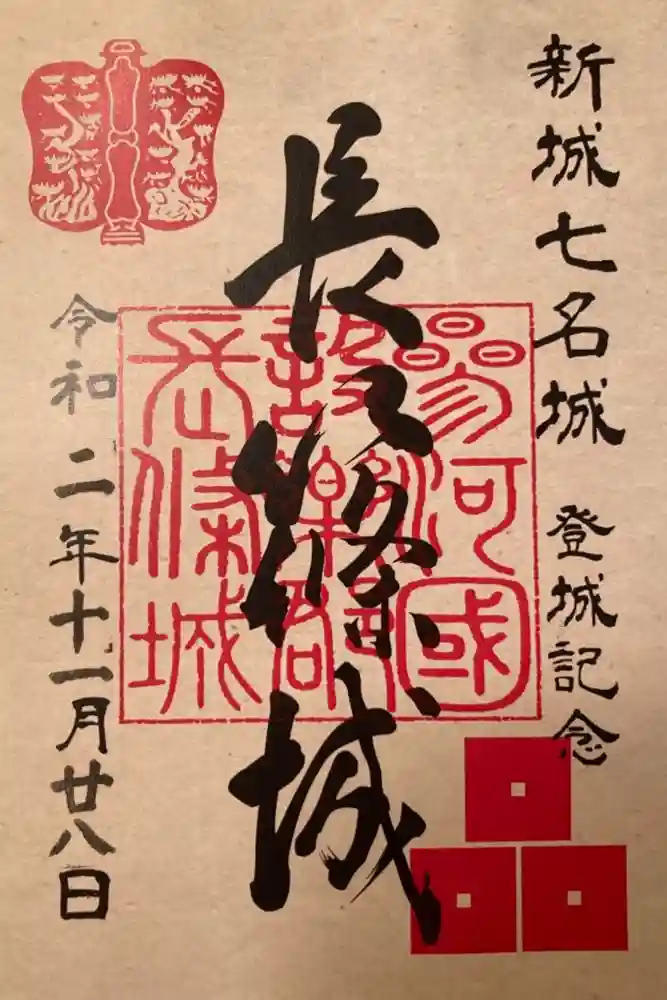 新城七名城 登城記念
長篠城
参河國
設樂郡
長篠城
令和二年十一月廿八日